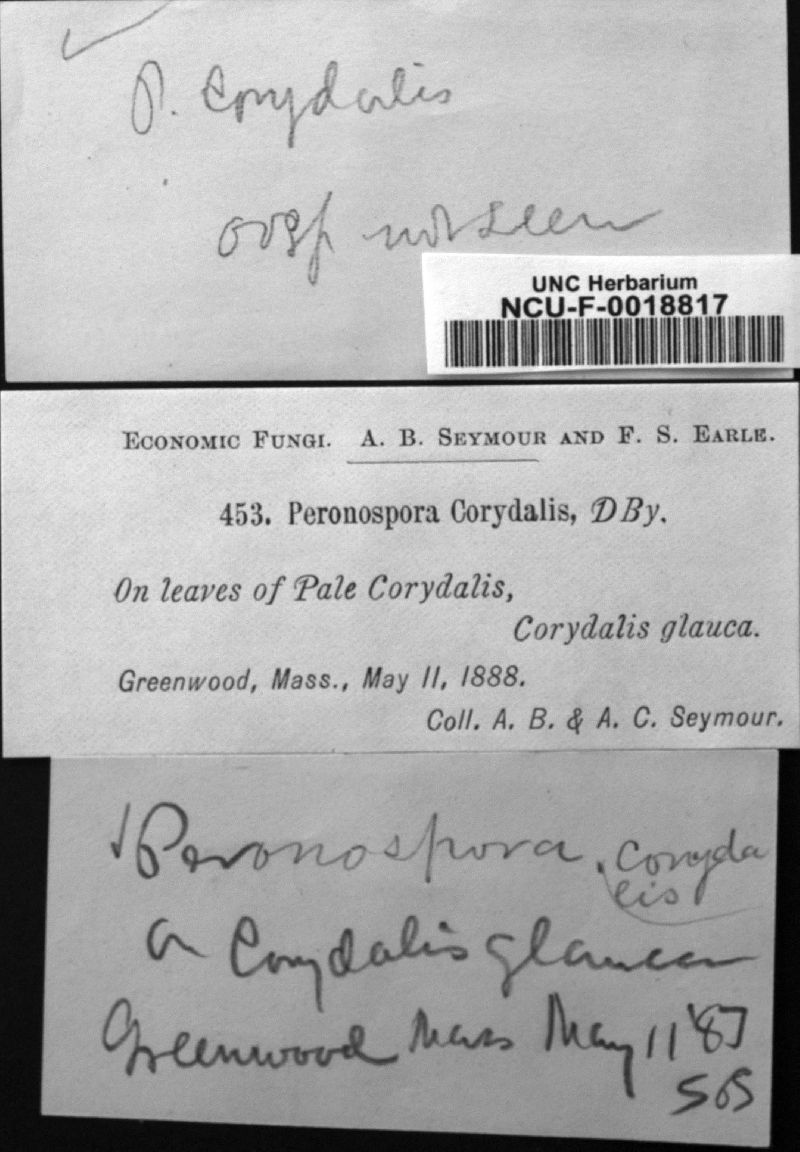 P. Corydalis
oosp not seen
UNC Herbarium
NCU-F-0018817
ECONOMIC FUNGI. A. B. SEYMOUR AND F. S. EARLE.
453. Peronospora Corydalis, DBy.
On leaves of Pale Corydalis,
Corydalis glauca.
Greenwood, Mass., May 11, 1888.
Coll. A. B. & A. C. Seymour.
Peronospora Coryda
lis
on Corydalis glauca
Greenwood Mass May 11 '87